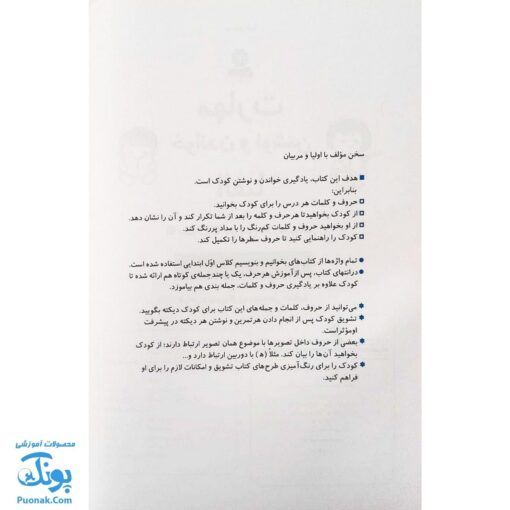 سخن مؤلف با اولیا و مربیان
هدف این کتاب، یادگیری خواندن و نوشتن کودک است.
بنابراین:
حروف و کلمات هر درس را برای کودک بخوانید.
از کودک بخواهید تا هر حرف و کلمه را بعد از شما تکرار کند و آن را نشان دهد.
از او بخواهید حروف و کلمات کم‌رنگ را با مداد پررنگ کند.
کودک را راهنمایی کنید تا حروف سطرها را تکمیل کند.
تمام واژه‌ها از کتاب‌های بخوانیم و بنویسیم کلاس اوّل ابتدایی استفاده شده است.
در انتهای کتاب، پس از آموزش هر حرف، یک یا چند جمله‌ی کوتاه هم ارائه شده تا
کودک علاوه بر یادگیری حروف و کلمات، جمله بندی هم بیاموزد.
می‌توانید از حروف، کلمات و جمله‌های این کتاب برای کودک دیکته بگویید.
تشویق کودک پس از انجام دادن هر تمرین و نوشتن هر دیکته در پیشرفت
او مؤثر است.
بعضی از حروف داخل تصویرها با موضوع همان تصویر ارتباط دارند؛ از کودک
بخواهید آن‌ها را بیان کند. مثلاً (ه) با دوربین ارتباط دارد و...
کودک را برای رنگ‌آمیزی طرح‌های کتاب تشویق و امکانات لازم را برای او
فراهم کنید.
محصولات آموزشی
پونک
Puonak.Com